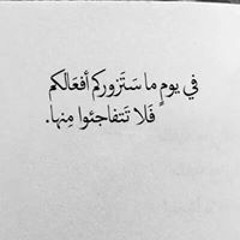 في يومٍ ما سَتَزوركم أفعَالكم
فَلا تَتفاجئوا مِنها.